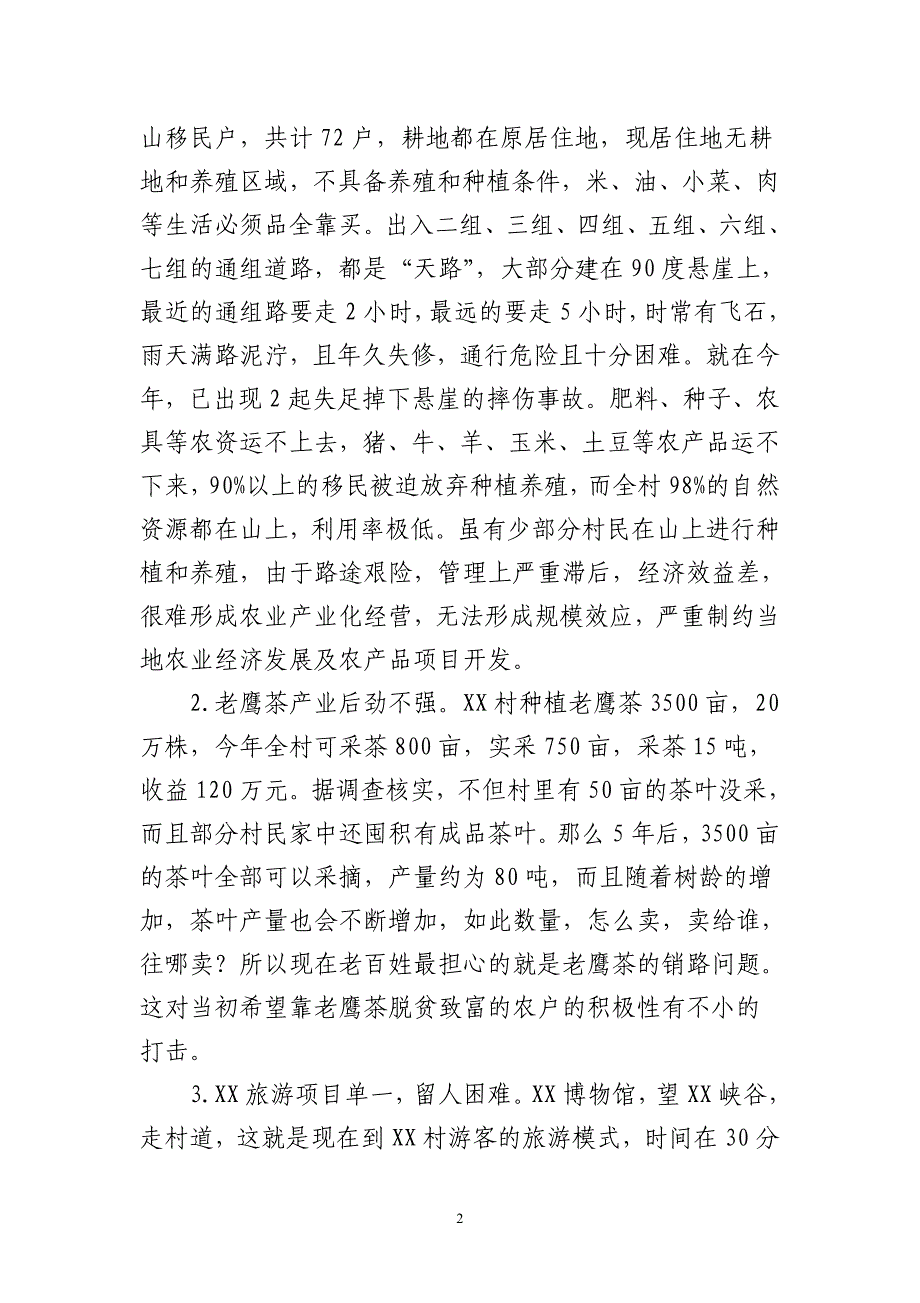 山移民户，共计 72 户，耕地都在原居住地，现居住地无耕
地和养殖区域，不具备养殖和种植条件，米、油、小菜、肉
等生活必须品全靠买。出入二组、三组、四组、五组、六组、
七组的通组道路，都是“天路”，大部分建在 90 度悬崖上，
最近的通组路要走 2 小时，最远的要走 5 小时，时常有飞石，
雨天满路泥泞，且年久失修，通行危险且十分困难。就在今
年，已出现 2 起失足掉下悬崖的摔伤事故。肥料、种子、农
具等农资运不上去，猪、牛、羊、玉米、土豆等农产品运不
下来，90%以上的移民被迫放弃种植养殖，而全村 98%的自然
资源都在山上，利用率极低。虽有少部分村民在山上进行种
植和养殖，由于路途艰险，管理上严重滞后，经济效益差，
很难形成农业产业化经营，无法形成规模效应，严重制约当
地农业经济发展及农产品项目开发。
2.老鹰茶产业后劲不强。XX 村种植老鹰茶 3500 亩，20
万株，今年全村可采茶 800 亩，实采 750 亩，采茶 15 吨，
收益 120 万元。据调查核实，不但村里有 50 亩的茶叶没采，
而且部分村民家中还囤积有成品茶叶。那么 5 年后，3500 亩
的茶叶全部可以采摘，产量约为 80 吨，而且随着树龄的增
加，茶叶产量也会不断增加，如此数量，怎么卖，卖给谁，
往哪卖？所以现在老百姓最担心的就是老鹰茶的销路问题。
这对当初希望靠老鹰茶脱贫致富的农户的积极性有不小的
打击。
3.XX 旅游项目单一，留人困难。XX 博物馆，望 XX 峡谷，
走村道，这就是现在到 XX 村游客的旅游模式，时间在 30 分
2